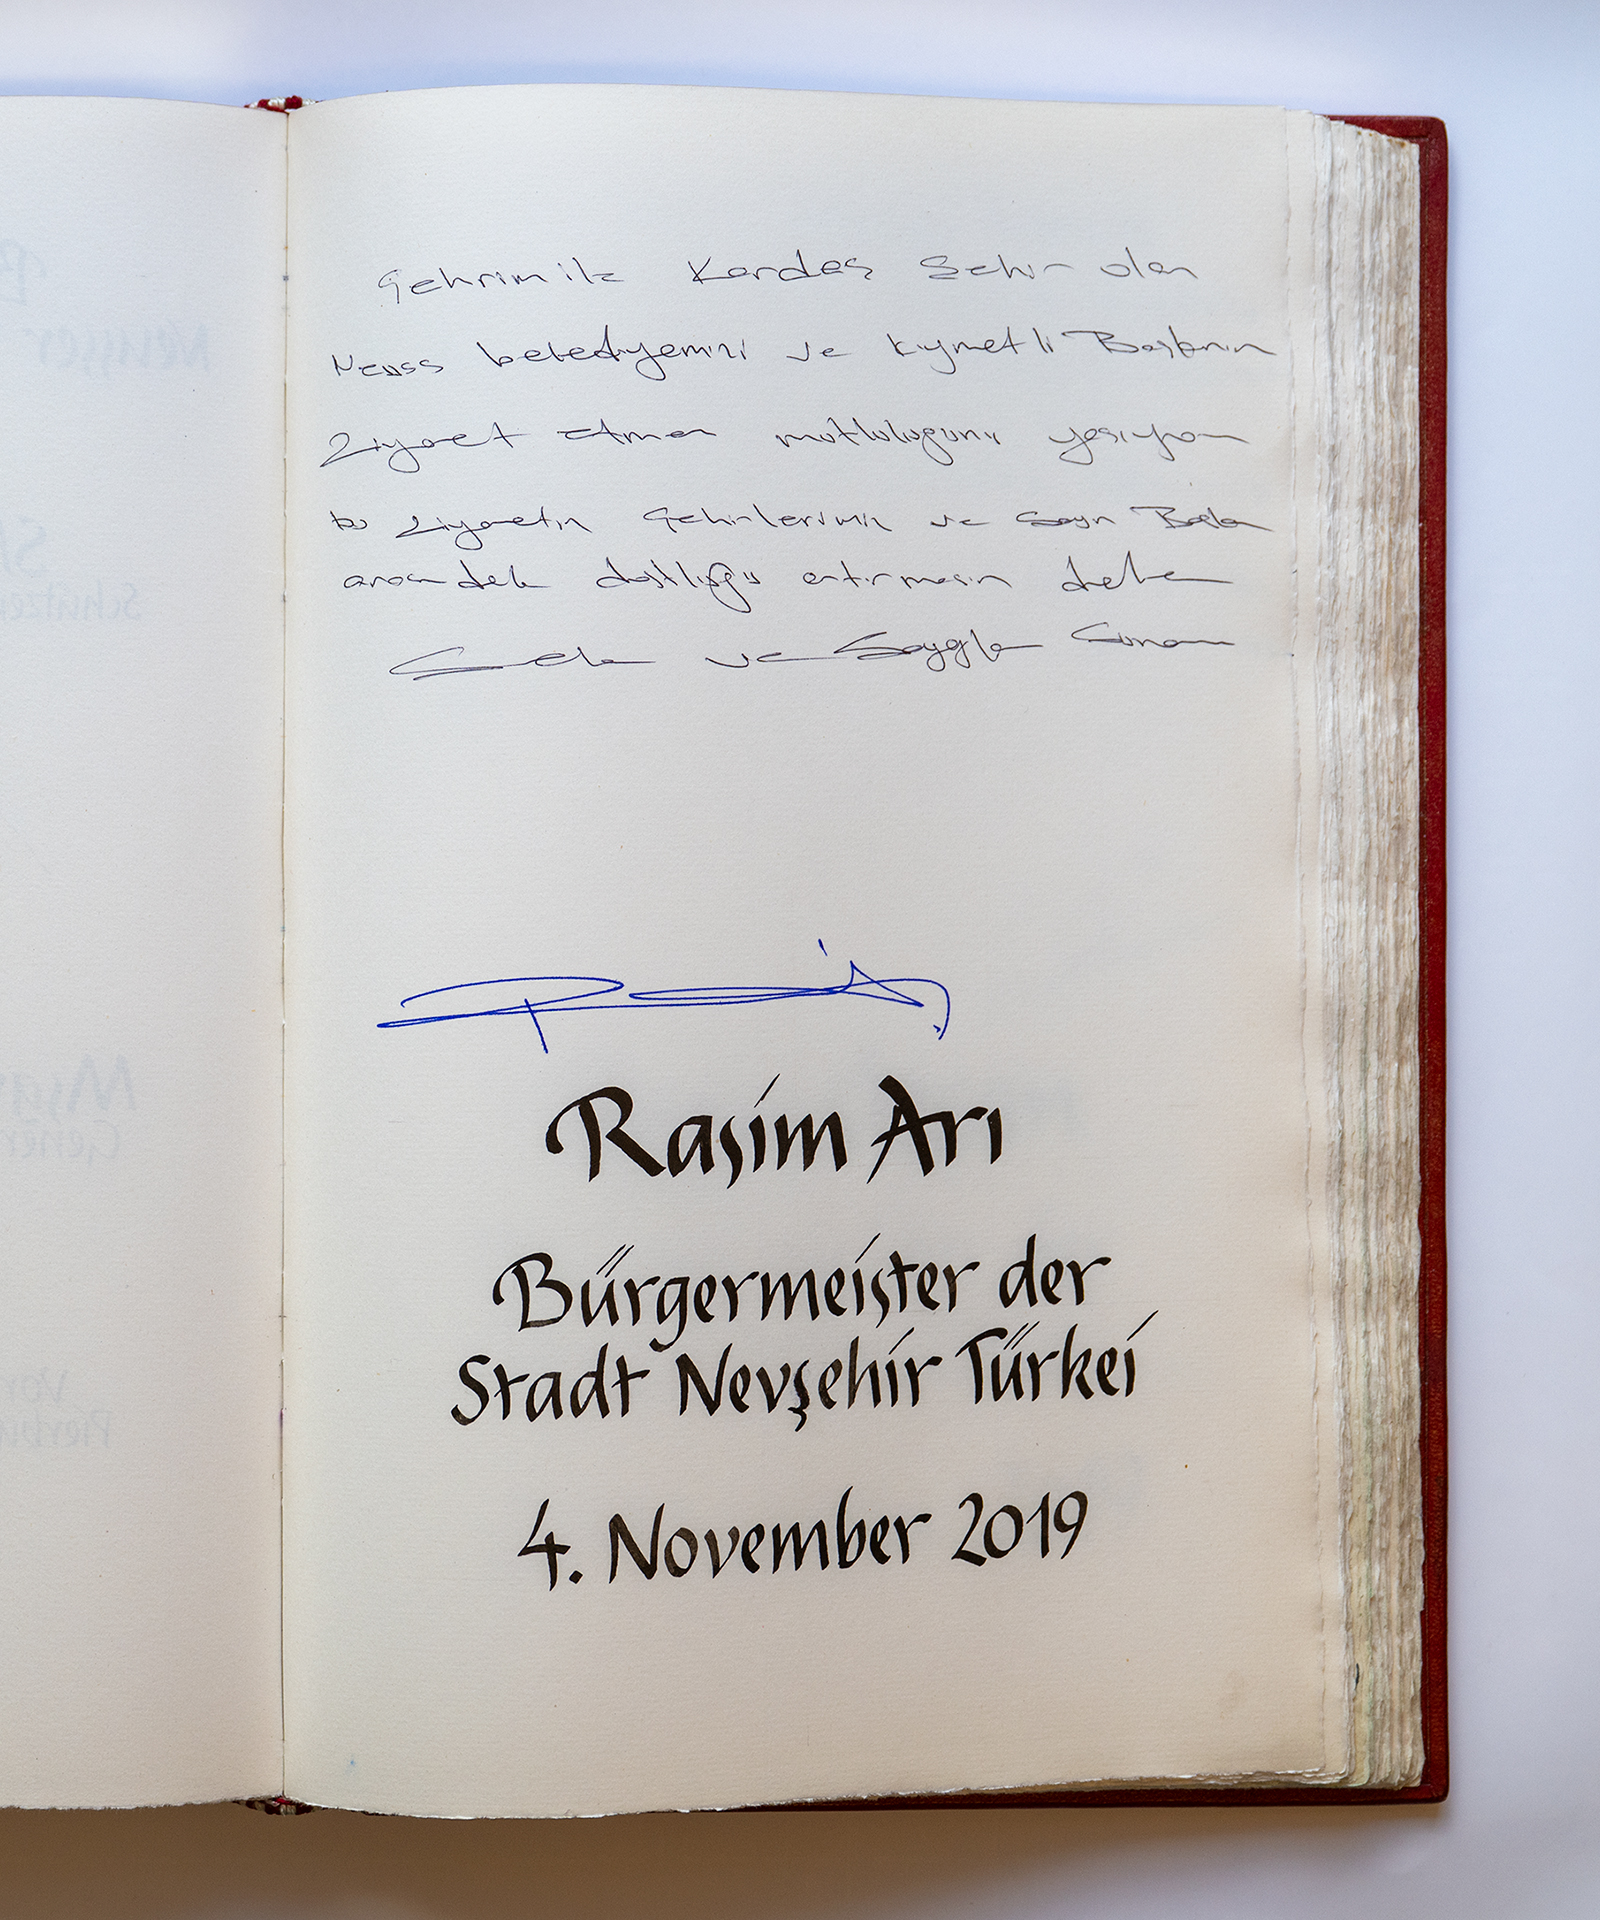 Şehrimiz Kardeş Şehir olan
Neuss belediyemizi ve kıymetli Başkanın
Ziyaret etmen mutluluğunu yaşıyom
bu ziyaretin Şehirlerimiz ve Sayın Başkan
arasındaki dostluğu artırmasın
ve Saygıla Sunam
Rasim Arı
Bürgermeister der
Stadt Nevşehir Türkei
4. November 2019